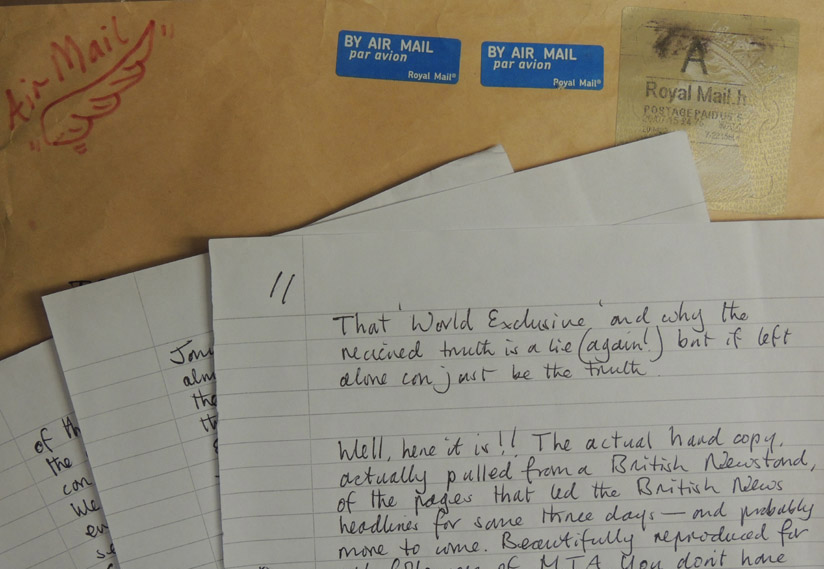 Air Mail
BY AIR MAIL
par avion
Royal Mail®
BY AIR MAIL
par avion
Royal Mail®
A
Royal Mail
POSTAGE PAID UK
11
That 'World Exclusive' and why the
recieved truth is a lie (again!) but if left
alone can just be the truth.
Well, here it is!! The actual hard copy,
actually pulled from a British Newstand,
of the pages that led the British News
headlines for some three days — and probably
more to come. Beautifully reproduced for
of MTA You don't have
of th
the
con
We